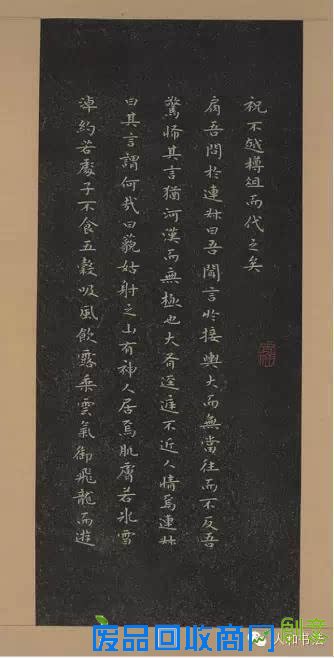 祝不越樽俎而代之矣
肩吾問於連叔曰吾聞言於接輿大而無當往而不反吾
驚怖其言猶河漢而無極也大有逕庭不近人情焉連叔
曰其言謂何哉曰藐姑射之山有神人居焉肌膚若冰雪
淖約若處子不食五穀吸風飲露乘雲氣御飛龍而遊
人和书法
废品回收商网